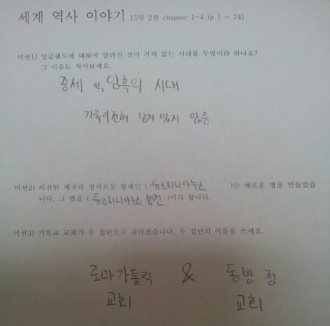 세계 역사 이야기 15명 2권 chapter 1-4 (p 1 - 74)
미션1) 잉글랜드에 대하여 알려진 것이 거의 없는 시대를 무엇이라 하나요?
그 이유도 적어보세요.
중세 암흑의 시대
기록이 전혀 남겨 있지 않은
미션2) 비잔틴 제국의 정의로운 황제인 ( 유스티니아누스 )는 새로운 법을 만들었습
니다. 그 법을 ( 유스티니아누스 법전 )이라 합니다.
미션3) 기독교 교회가 두 집단으로 갈라졌습니다. 두 집단의 이름을 쓰세요.
로마가톨릭 & 동방 정
교회 교회